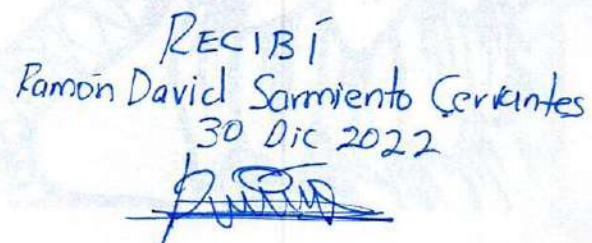 RECIBÍ
Ramón David Sarmiento Cervantes
30 Dic 2022